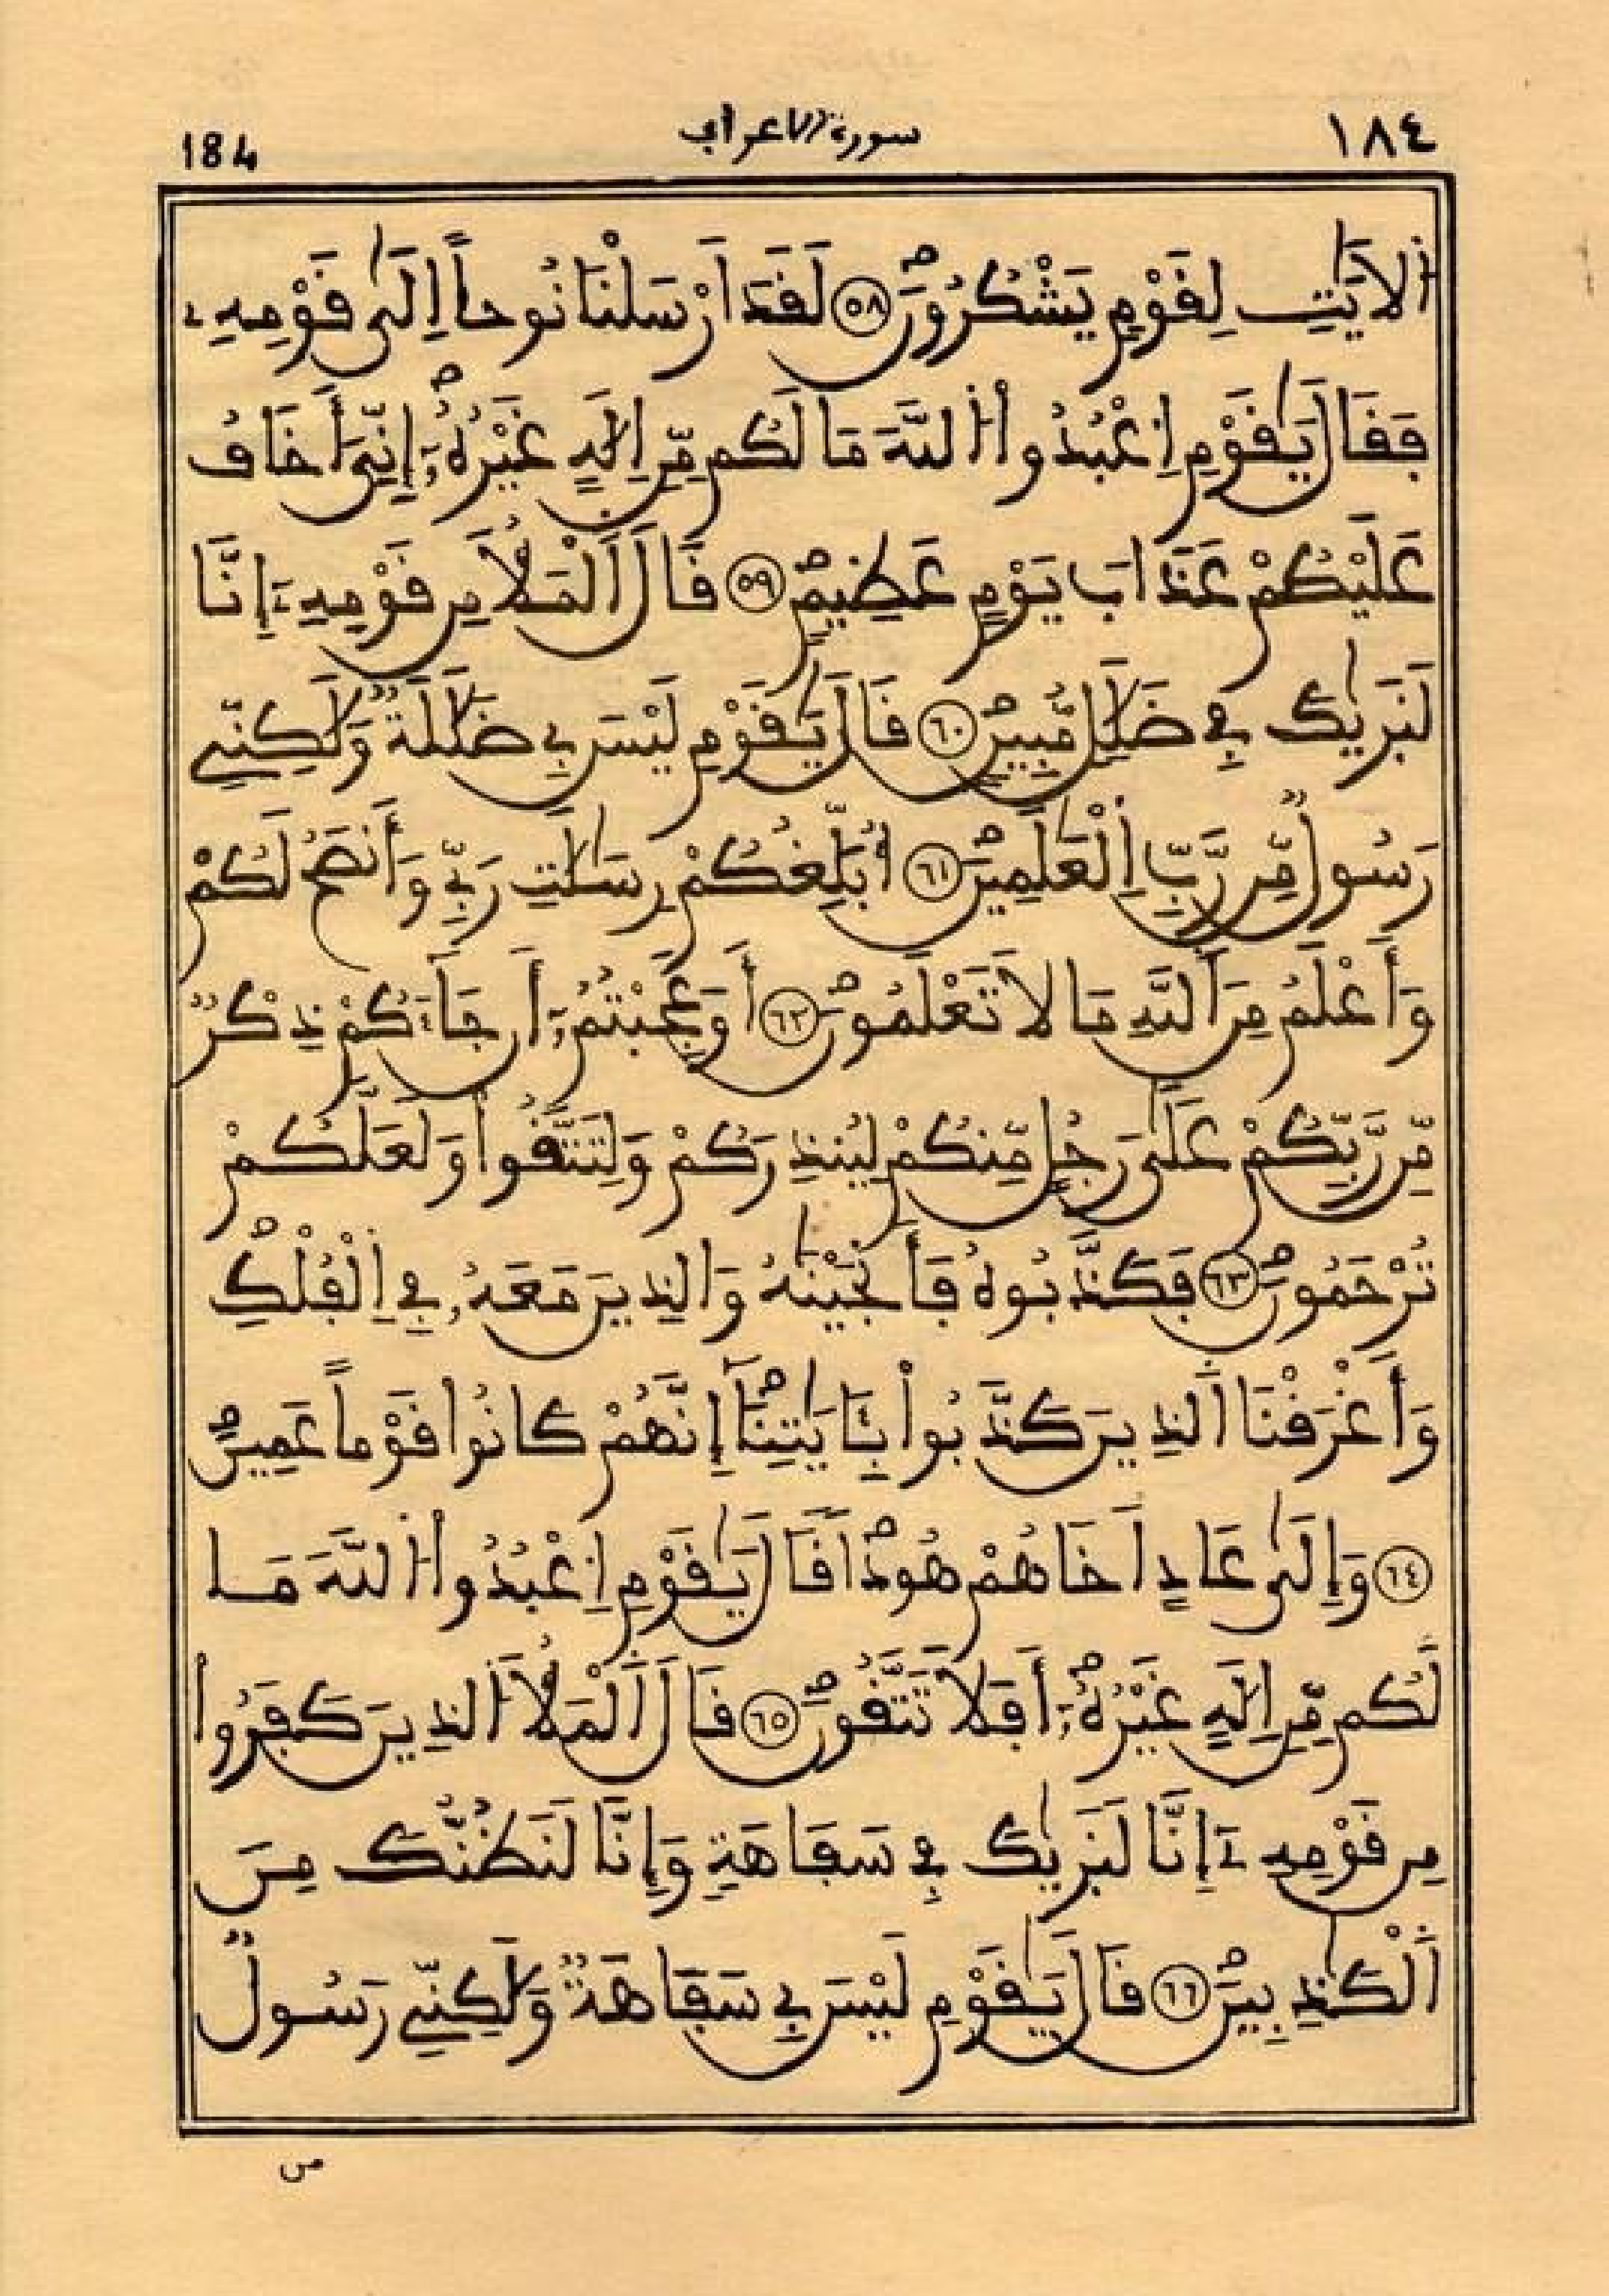 184 سورة الاعراف ١٨٤
اَ۬لَايَٰتِ لِقَوْمٍ يَشْكُرُونَۖ ٥٨ لَقَدَ اَرْسَلْنَا نُوحاً اِلَىٰ قَوْمِهِۦ
فَقَالَ يَٰقَوْمِ اِ۟عْبُدُوا۟ اُ۬للَّهَ مَا لَكُم مِّنِ اِلَٰهٍ غَيْرُهُۥٓۖ إِنِّيَ أَخَافُ
عَلَيْكُمْ عَذَابَ يَوْمٍ عَظِيمٍۖ ٥٩ قَالَ اَ۬لْمَلَأُ مِن قَوْمِهِۦٓ إِنَّا
لَنَرَىٰكَ فِے ضَلَٰلٍ مُّبِينٍۖ ٦٠ قَالَ يَٰقَوْمِ لَيْسَ بِے ضَلَٰلَةٌ وَلَٰكِنِّے
رَسُولٌ مِّن رَّبِّ اِ۬لْعَٰلَمِينَۖ ٦١ أُبَلِّغُكُمْ رِسَٰلَٰتِ رَبِّے وَأَنصَحُ لَكُمْ
وَأَعْلَمُ مِنَ اَ۬للَّهِ مَا لَا تَعْلَمُونَۖ ٦٢ أَوَعَجِبْتُمُۥٓ أَن جَآءَكُمْ ذِكْرٌ
مِّن رَّبِّكُمْ عَلَىٰ رَجُلٍ مِّنكُمْ لِيُنذِرَكُمْ وَلِتَتَّقُوا۟ وَلَعَلَّكُمْ
تُرْحَمُونَۖ ٦٣ فَكَذَّبُوهُ فَأَنجَيْنَٰهُ وَالذِينَ مَعَهُۥ فِے اِ۬لْفُلْكِۖ
وَأَغْرَقْنَا اَ۬لذِينَ كَذَّبُوا۟ بِـَٔايَٰتِنَآۖ إِنَّهُمْ كَانُوا۟ قَوْماً عَمِينَۖ
٦٤ وَإِلَىٰ عَادٍ اَخَاهُمْ هُوداًۖ قَالَ يَٰقَوْمِ اِ۟عْبُدُوا۟ اُ۬للَّهَ مَا
لَكُم مِّنِ اِلَٰهٍ غَيْرُهُۥٓۖ أَفَلَا تَتَّقُونَۖ ٦٥ قَالَ اَ۬لْمَلَأُ اُ۬لذِينَ كَفَرُوا۟
مِن قَوْمِهِۦٓ إِنَّا لَنَرَىٰكَ فِے سَفَاهَةٍ وَإِنَّا لَنَظُنُّكَ مِنَ
اَ۬لْكَٰذِبِينَۖ ٦٦ قَالَ يَٰقَوْمِ لَيْسَ بِے سَفَاهَةٌ وَلَٰكِنِّے رَسُولٌ
من